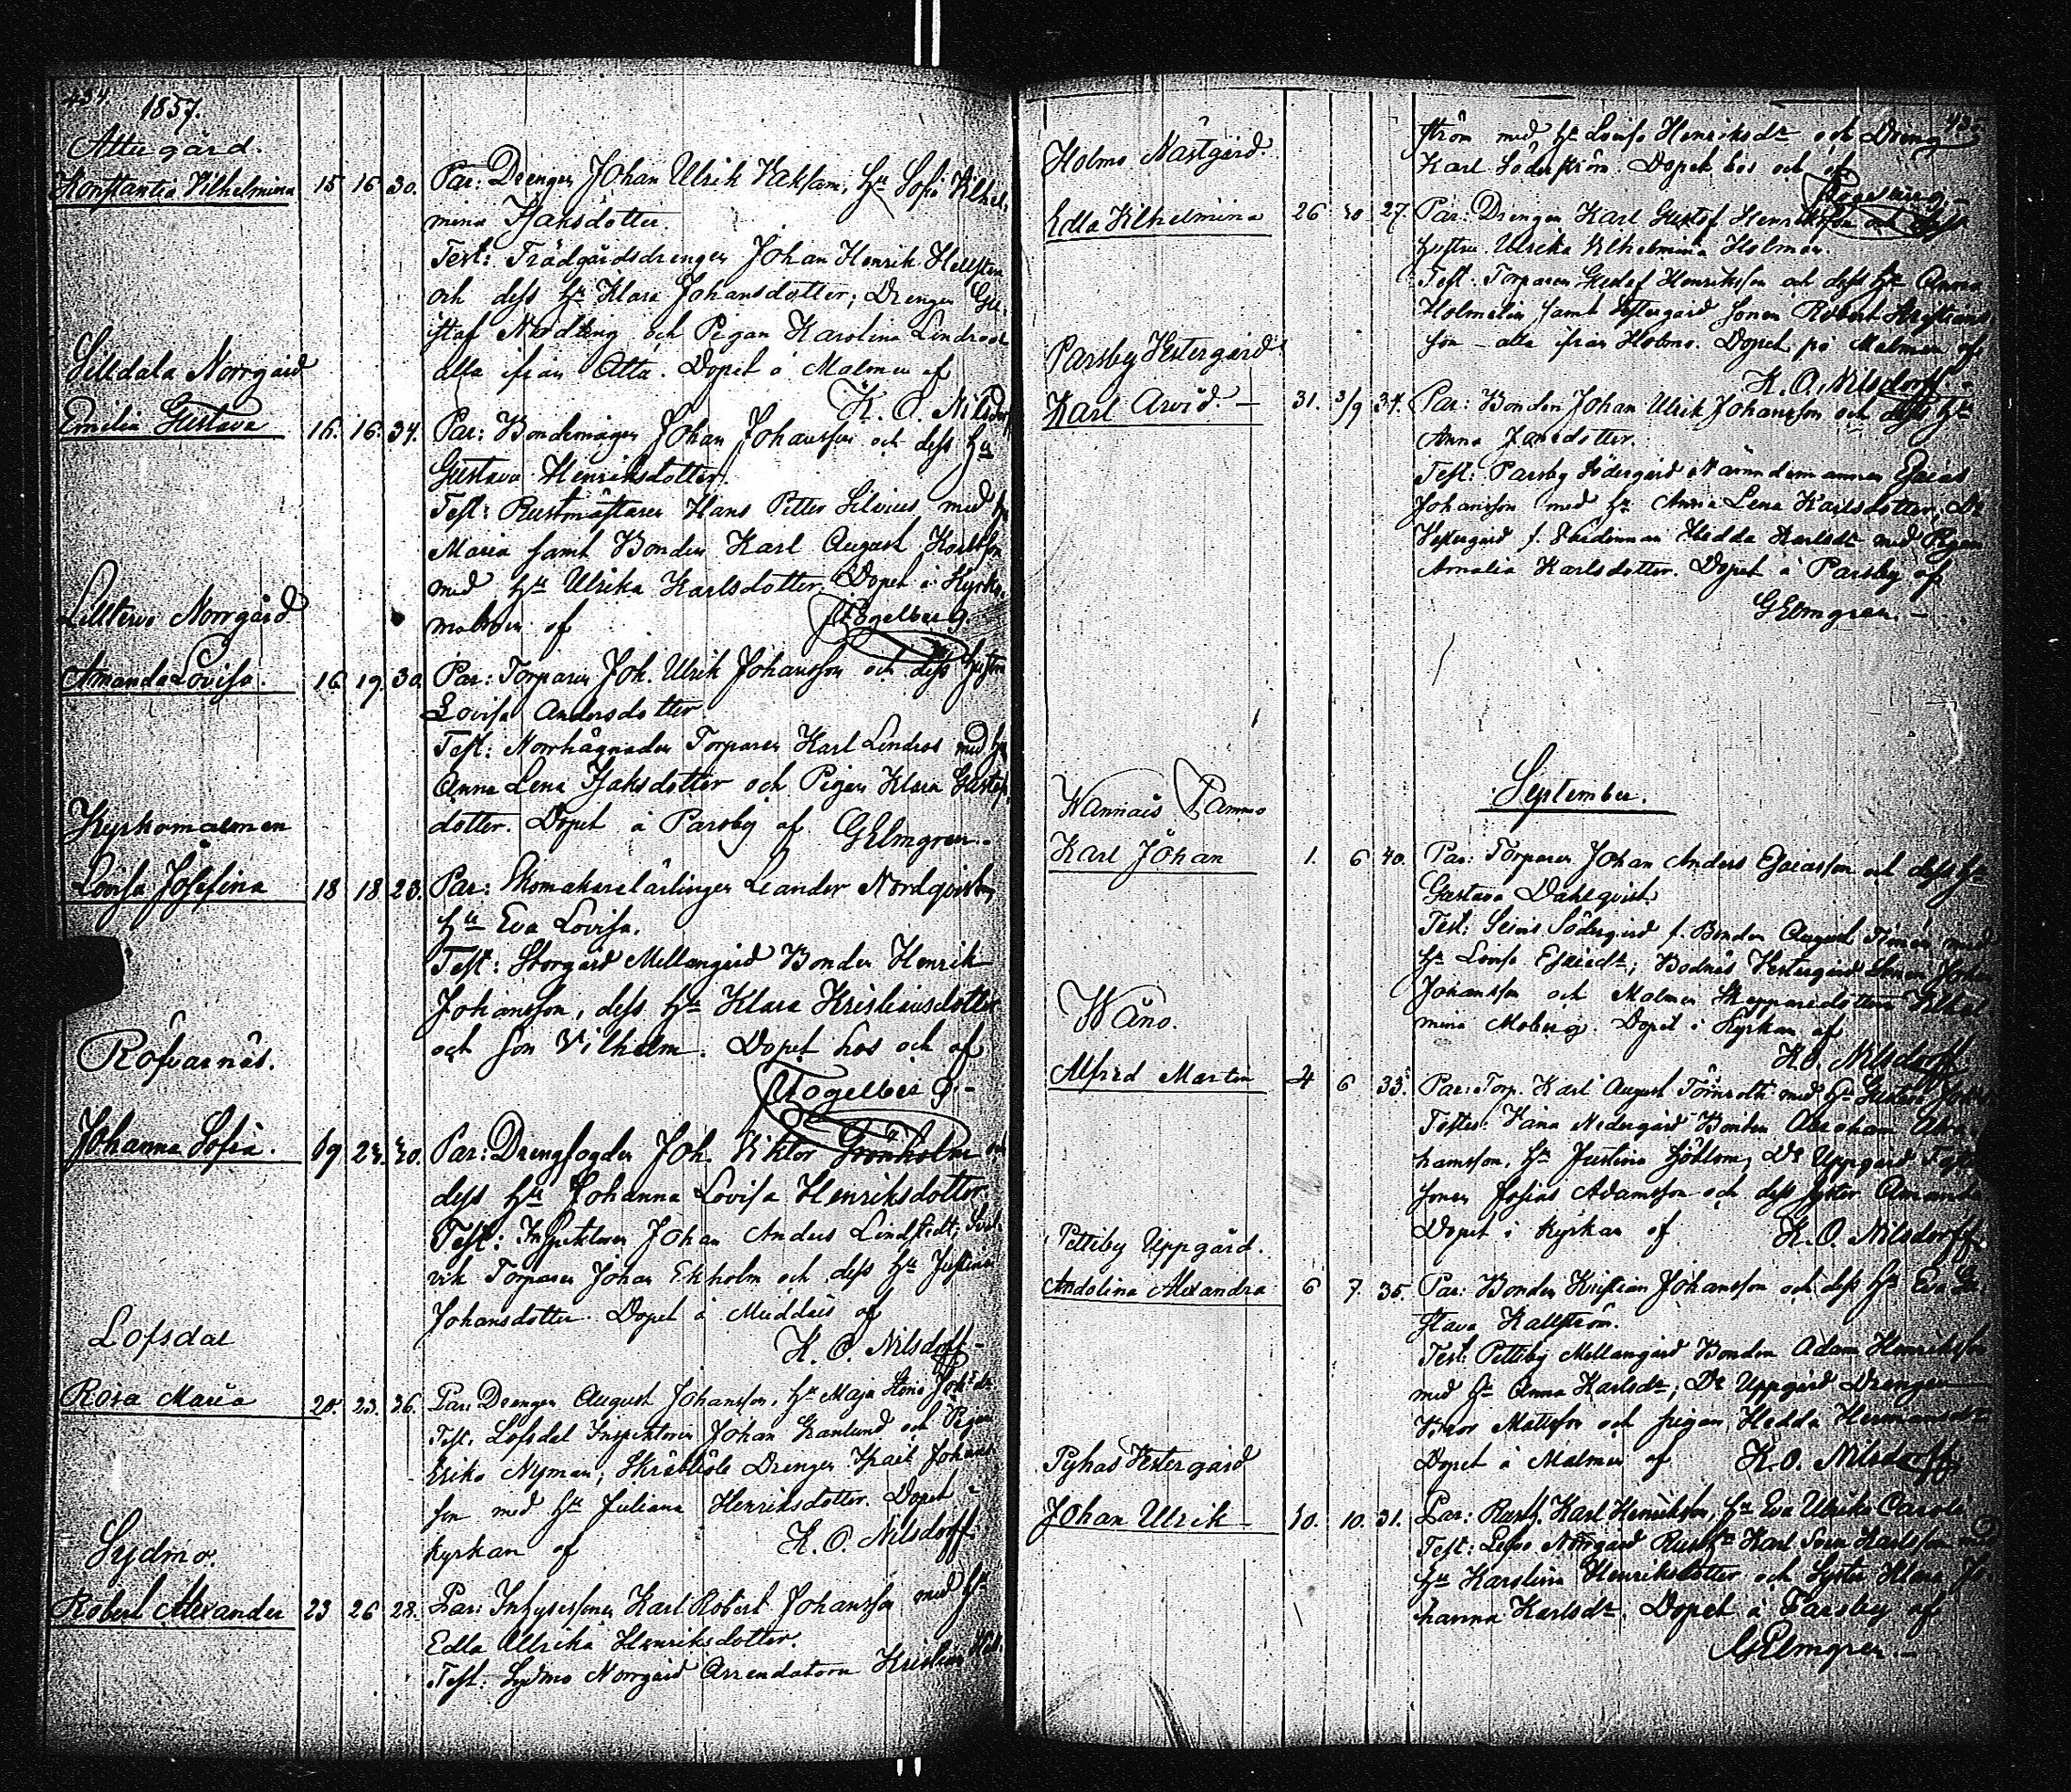 434
1857.
Attu gård.
Konstantia Vilhelmina 15 16 30. Par: Drengen Johan Ulrik Isaksson, Hu Sofi Vilhel-
mina Isaksdotter.
Test: Trädgårdsdrengen Johan Henrik Hellsten
och dess Hu Klara Johansdotter; Drengen Gu-
staf Nordling och Pigan Karolina Lindroos
alla ifrån Attu. Döpet å Malmen af
K. O. Nilsdorff
Silldala Norrgård
Emilia Gustava 16. 16. 34. Par: Bondemågen Johan Johansson och dess Hu
Gustava Henriksdotter.
Test: Rustmästaren Hans Petter Silvius med Hu
Maria samt Bonden Karl August Karlsson
med Hu Ulrika Karlsdotter. Döpet å Kyrko-
malmen af Fogelberg.
Norrgård
Amanda Lovisa. 16. 19. 30. Par: Torparen Joh. Ulrik Johansson och dess hustru
Lovisa Andersdotter.
Test: Torparen Karl Lindros med Hu
Anna Lena Isaksdotter och Pigan Klara Gustafs-
dotter. Döpet å Parsby af GElmgren.
Kyrkomalmen
Lovisa Josefina 18 18. 23. Par: Skomakarelärlingen Leander Nordqvist
Hu Eva Lovisa.
Test: Storgård Mellangård Bonden Henrik
Johansson, dess Hu Klara Kristiansdotter
och son Vilhelm. Döpet hos och af
Fogelberg.
Röfvarnäs.
Johanna Sofia. 19 24. 40. Par: Drengfogden Joh. Viktor Grönholm och
dess Hu Johanna Lovisa Henriksdotter.
Test: Inspektoren Johan Anders Lindstedt;
vik Torparen Johan Ekholm och dess Hu Justina
Johansdotter. Döpet å Muddais af
K. O. Nilsdorff
Lofsdal
Rosa Maria 20. 23. 36. Par: Drengen August Johansson, Hu Maja
Test: Lofsdal Inspektoren Johan Granlund och Pigan
Erika Nyman; Skräbböle Drengen Johans-
son med Hu Juliana Henriksdotter. Döpet i
kyrkan af K. O. Nilsdorff
Sydmo.
Robert Alexander 23 26 28. Par: Inhysessonen Karl Robert Johansson med Hu
Edla Ulrika Henriksdotter.
Test: Sydmo Norrgård Arrendatorn Kristian
435
ström med Hu Lovisa Henriksdr och Dreng
Karl Söderström. Döpet hos och af
Fogelberg.
Holmo Nästgård.
Edla Vilhelmina 26 30 27. Par: Drengen Karl Gustaf Henriksson och dess
hustru Ulrika Vilhelmina Holmén.
Test: Torparen Gustaf Henriksson och dess Hu Anna
samt Vestergård sonen Robert Kristians-
son – alla ifrån Holmo. Döpet på Malmen af
K. O. Nilsdorff.
Parsby Vestergård
Karl Arvid. – 31. 3/9 34. Par: Bonden Johan Ulrik Johansson och dess Hu
Anna Jansdotter.
Test: Parsby Södergård Nämndemannen Esaias
Johansson med Hu Anna Lena Karlsdotter; Do
Vestergård f. Hedda Karlsdr med Pigan
Amalia Karlsdotter. Döpet å Parsby af
GElmgren. –
September.
Wannais
Karl Johan 1. 6 40. Par: Torparen Johan Anders Esaiasson och dess Hu
Gustava Dahlqvist.
Test: Södergård f. Bonden August med
Hu Lovisa Esaiasdr; Bodnäs Vestergård Sonen Johan
Johansson och Malmen Skepparedottren Vilhel-
mina Moberg. Döpet i Kyrkan af
K.O. Nilsdorff
Wåno.
Alfred Martin 4 6 33. Par: Torp. Karl August Törnroth med Hu Gustava
Testes: Nedergård Bonden Abraham Abra-
hamsson, Hu Justina Sjöblom; Do Uppgård
sonen Josias Adamsson och dess syster Amanda
Döpet i kyrkan af K. O. Nilsdorff.
Pettiby Uppgård.
Andolina Alexandra 6 7. 35. Par: Bonden Kristian Johansson och dess Hu Eva Gu-
stava Kallström.
Test: Pettiby Mellangård Bonden Adam Henriksson
med Hu Anna Karlsdr; Do Uppgård Drengen
Mattsson och pigan Hedda Hermansdr
Döpet å Malmen af K. O. Nilsdorff
Pyhas Vestergård
Johan Ulrik – 10. 10. 31. Par: Rusth. Karl Henriksson, Hu Eva Ulrika
Test: Norrgård Rusth. Karl Sven Karlsson med
Hu Karolina Henriksdotter och Syster Klara Jo-
hanna Karlsdr. Döpet å Parsby af
GElmgren. –